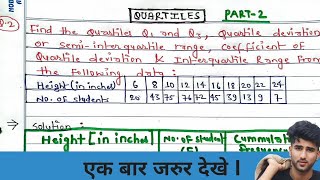 QUARTILES PART-2
Q-2
Find the Quartiles Q1 and Q3, Quartile deviation
or Semi-interquartile range, coefficient of
Quartile deviation & Interquartile Range from
the following data:
Height (in inches) 6 8 10 12 14 16 18 20 22 24
No. of students 20 43 75 76 72 45 39 13 9 7
Solution:
Height [in inches] No. of student Cummulati
(f) frequency
एक बार जरुर देखे ।